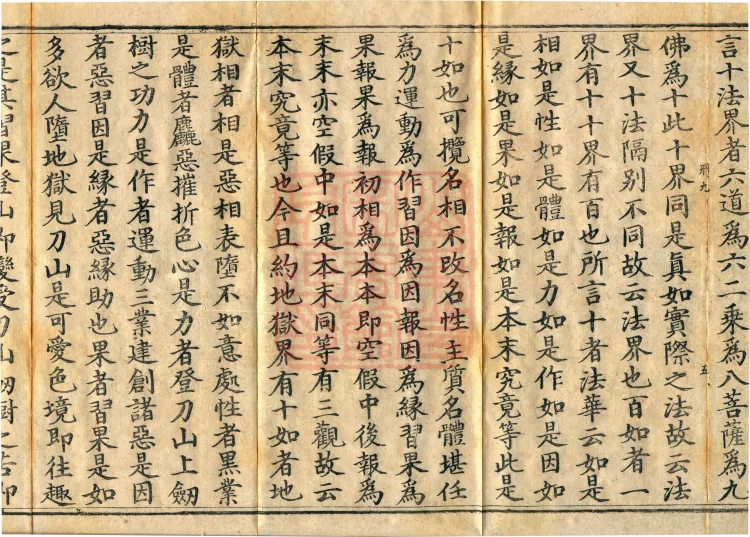 言十法界者六道爲六二乗爲八菩薩爲九
佛爲十此十界同是眞如實際之法故云法
刑九
五
界又十法隔別不同故云法界也百如者一
界有十十界有百也所言十者法華云如是
相如是性如是體如是力如是作如是因如
是緣如是果如是報如是本末究竟等此是
十如也可攬名相不改名性主質名體堪任
爲力運動爲作習因爲因報因爲緣習果爲
果報果爲報初相爲本本即空假中後報爲
末末亦空假中如是本末同等有三觀故云
本末究竟等也今且約地獄界有十如者地
獄相者相是惡相表墮不如意處性者黒業
是體者麤惡摧折色心是力者登刀山上劒
樹之功力是作者運動三業建創諸惡是因
者惡習因是緣者惡緣助也果者習果是如
多欲人墮地獄見刀山是可愛色境即往趣
之是其習果登山即變受刀山劒樹之苦即